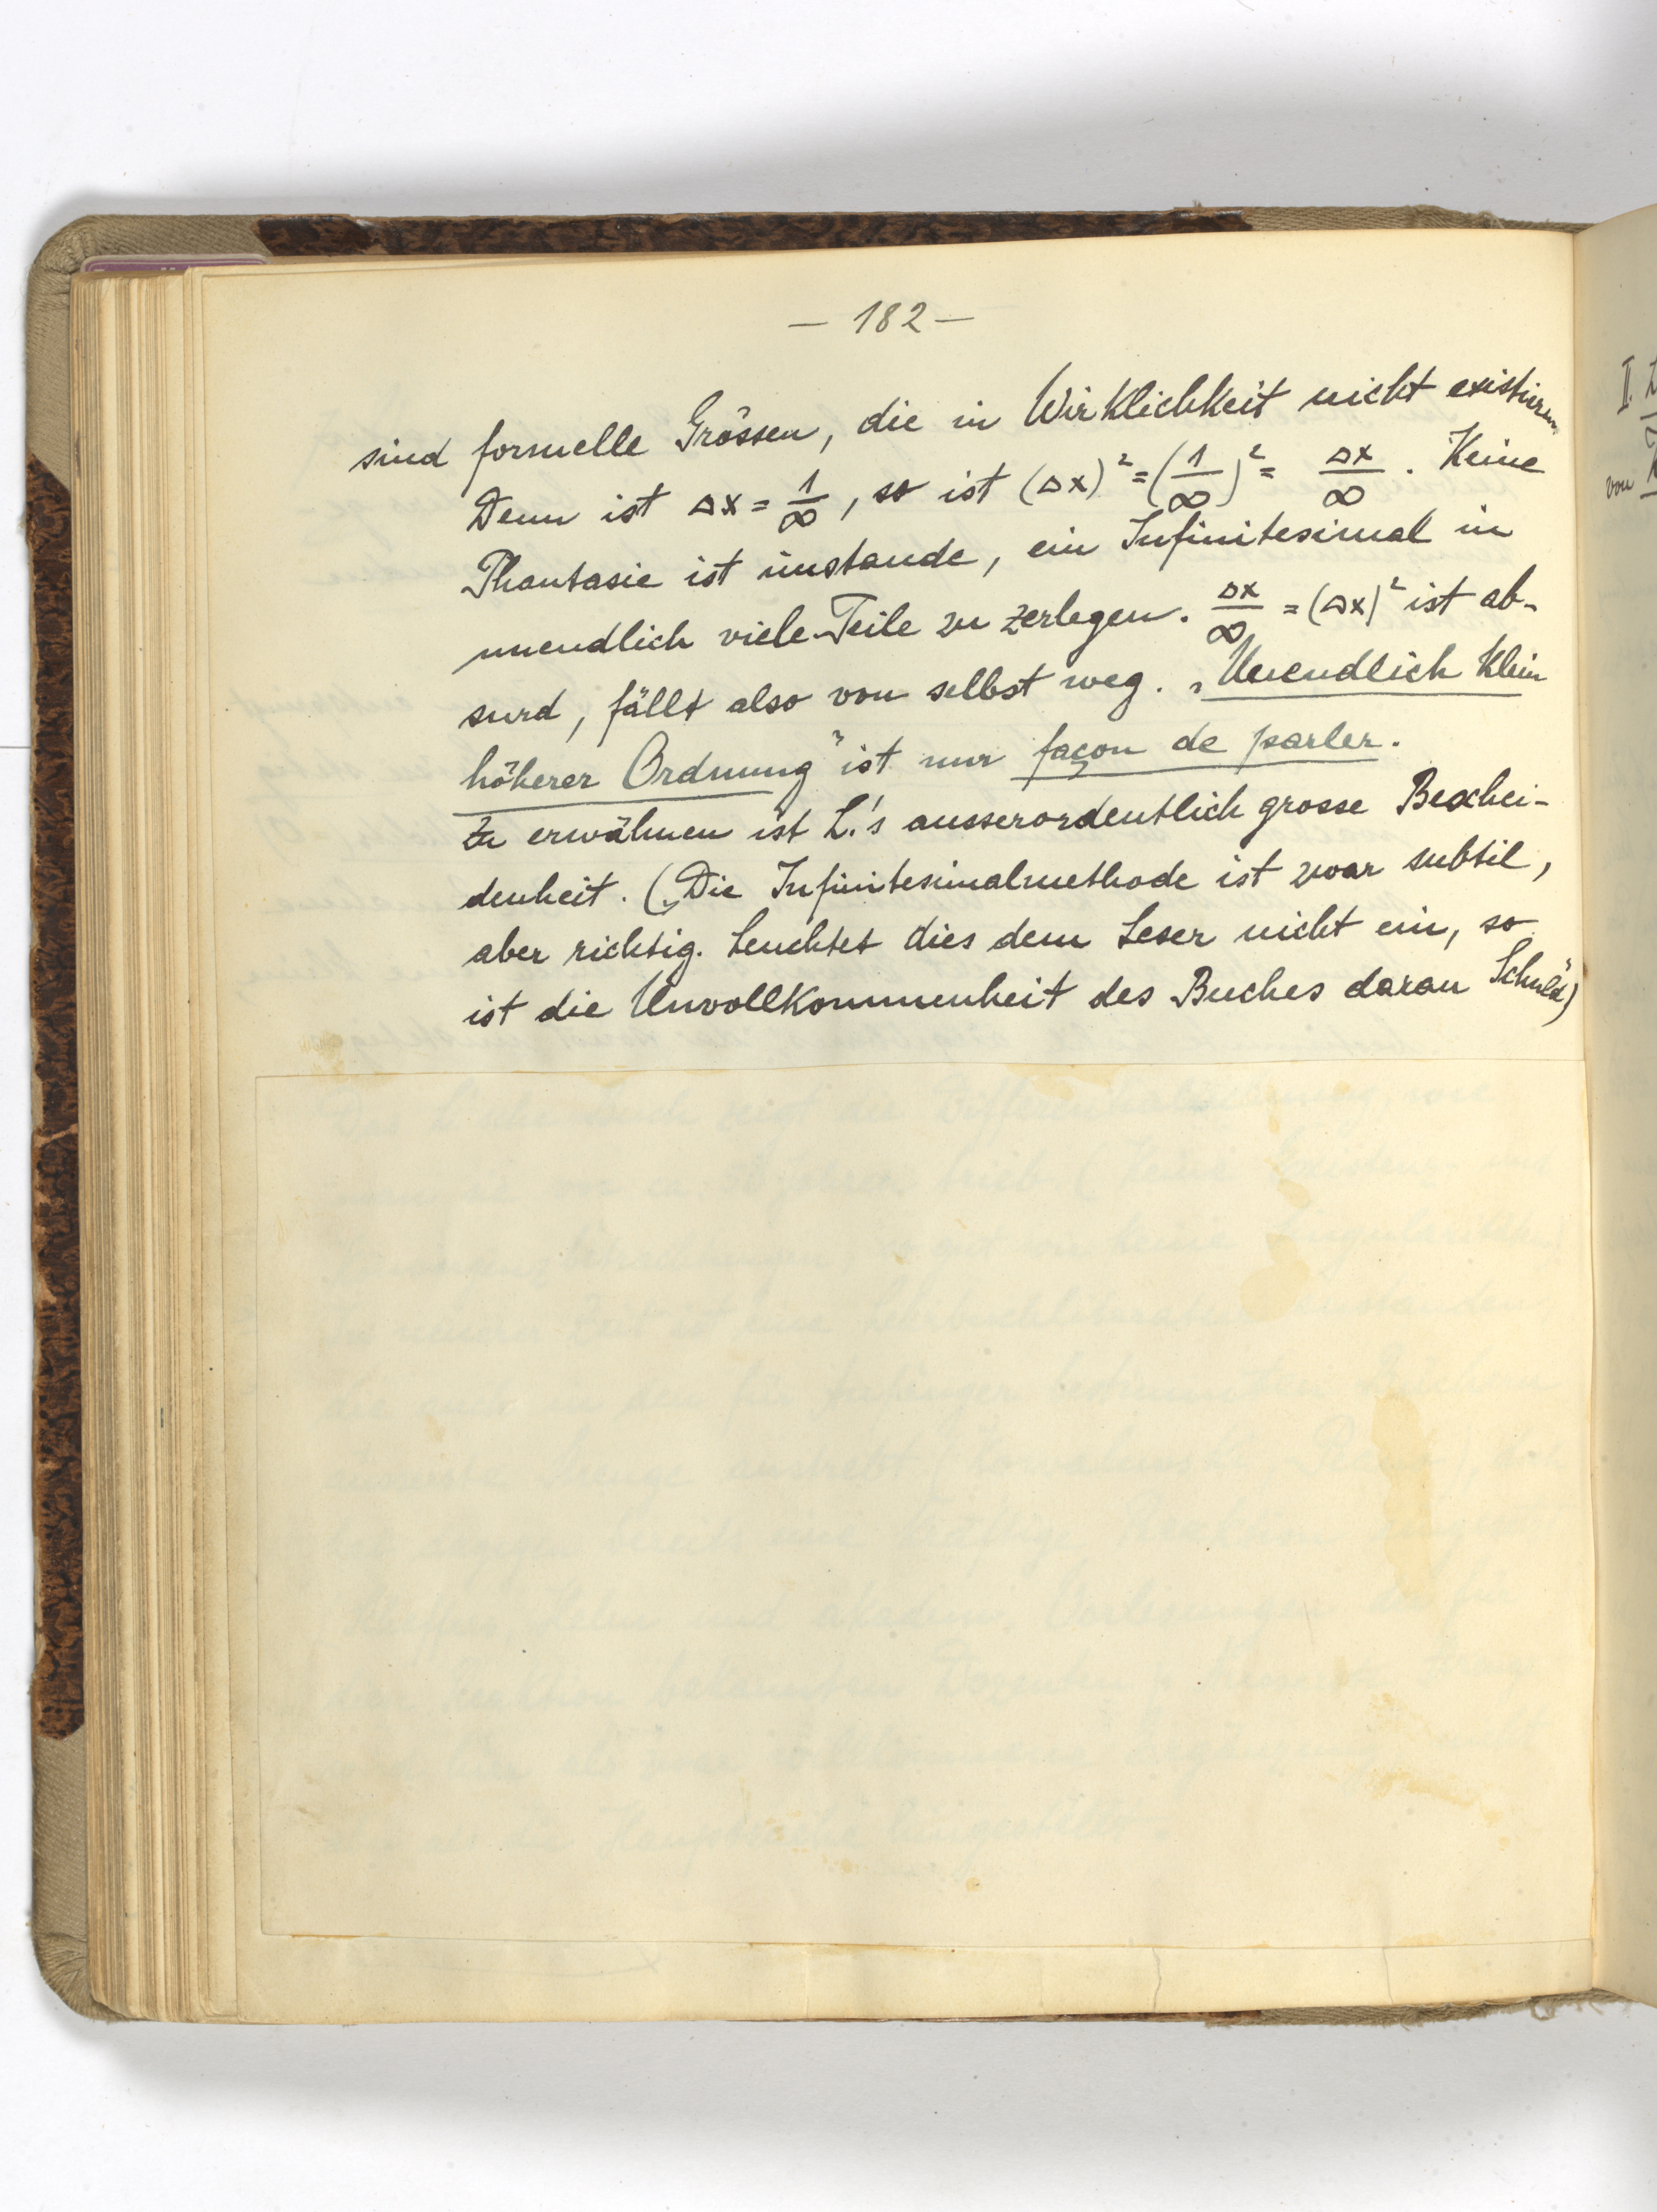 — 182 —
sind formelle Grössen, die in Wirklichkeit nicht existieren.
Denn ist Δx = 1/∞, so ist (Δx)² = (1/∞)² = Δx/∞. Keine
Phantasie ist imstande, ein Infinitesimal in
unendlich viele Teile zu zerlegen. Δx/∞ = (Δx)² ist ab-
surd, fällt also von selbst weg. „Unendlich klein
höherer Ordnung" ist nur façon de parler.
Zu erwähnen ist L.'s ausserordentlich grosse Beschei-
denheit. („Die Infinitesimalmethode ist zwar subtil,
aber richtig. Leuchtet dies dem Leser nicht ein, so
ist die Unvollkommenheit des Buches daran Schuld")
II.
von